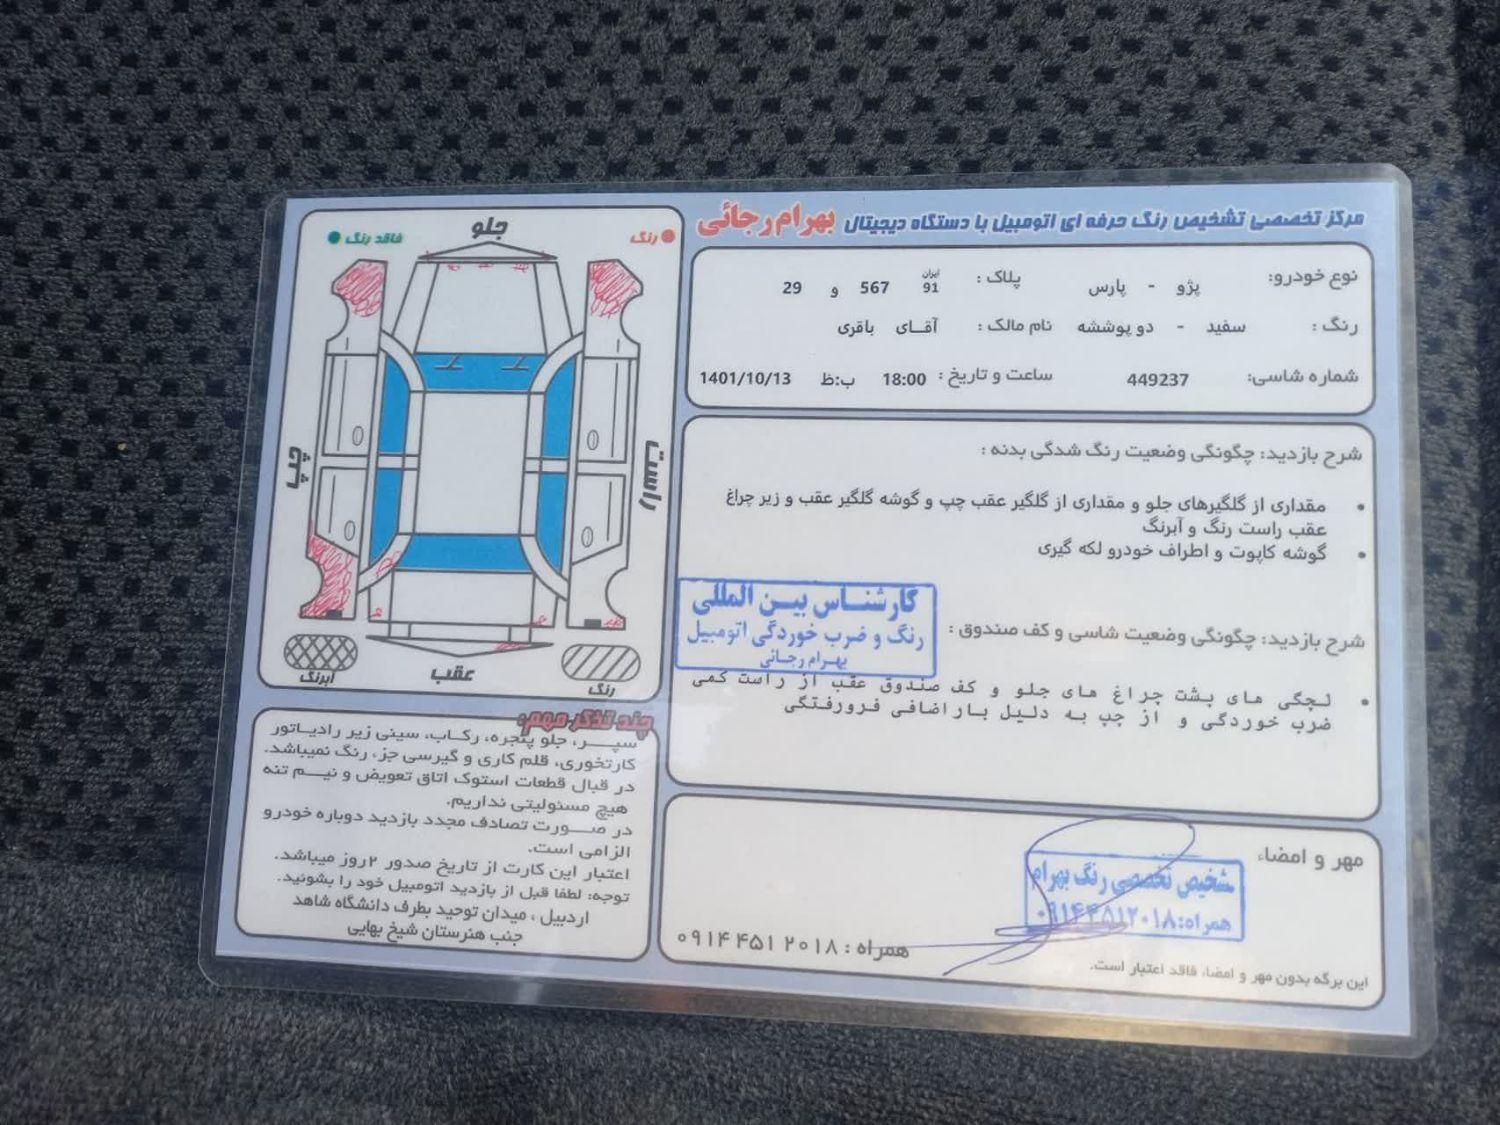 مرکز تخصصی تشخیص رنگ حرفه ای اتومبیل با دستگاه دیجیتال بهرام رجائی
نوع خودرو: پژو - پارس پلاک : ایران 91 567 و 29
رنگ : سفید - دو پوششه نام مالک : آقـای باقری
شماره شاسی: 449237 ساعت و تاریخ : 18:00 ب:ظ 1401/10/13
شرح بازدید: چگونگی وضعیت رنگ شدگی بدنه :
• مقداری از گلگیرهای جلو و مقداری از گلگیر عقب چپ و گوشه گلگیر عقب و زیر چراغ
عقب راست رنگ و آبرنگ
• گوشه کاپوت و اطراف خودرو لکه گیری
کارشناس بین المللی
رنگ و ضرب خوردگی اتومبیل
بهرام رجائی
شرح بازدید: چگونگی وضعیت شاسی و کف صندوق :
• لچگی های پشت چراغ های جلو و کف صندوق عقب از راست کمی
ضرب خوردگی و از چپ به دلیل بار اضافی فرورفتگی
مهر و امضاء
مشخیص تخصصی رنگ بهرام
همراه:۰۹۱۴۴۵۱۲۰۱۸
همراه : ۰۹۱۴ ۴۵۱ ۲۰۱۸
این برگه بدون مهر و امضاء فاقد اعتبار است.
جلو
رنگ
فاقد رنگ
چپ
راست
عقب
آبرنگ
رنگ
چند تذکر مهم:
سپـــر، جلو پنجره، رکاب، سینی زیر رادیـاتور
کارتخوری، قلم کاری و گیرسی جز، رنگ نمیباشد.
در قبال قطعات استوک اتاق تعویض و نیـم تنه
هیچ مسئولیتی نداریم.
در صـورت تصادف مجدد بازدید دوباره خودرو
الزامی است.
اعتبار این کارت از تاریخ صدور ۲روز میباشد.
توجه: لطفا قبل از بازدید اتومبیل خود را بشوئید.
اردبیل ، میدان توحید بطرف دانشگاه شاهد
جنب هنرستان شیخ بهایی